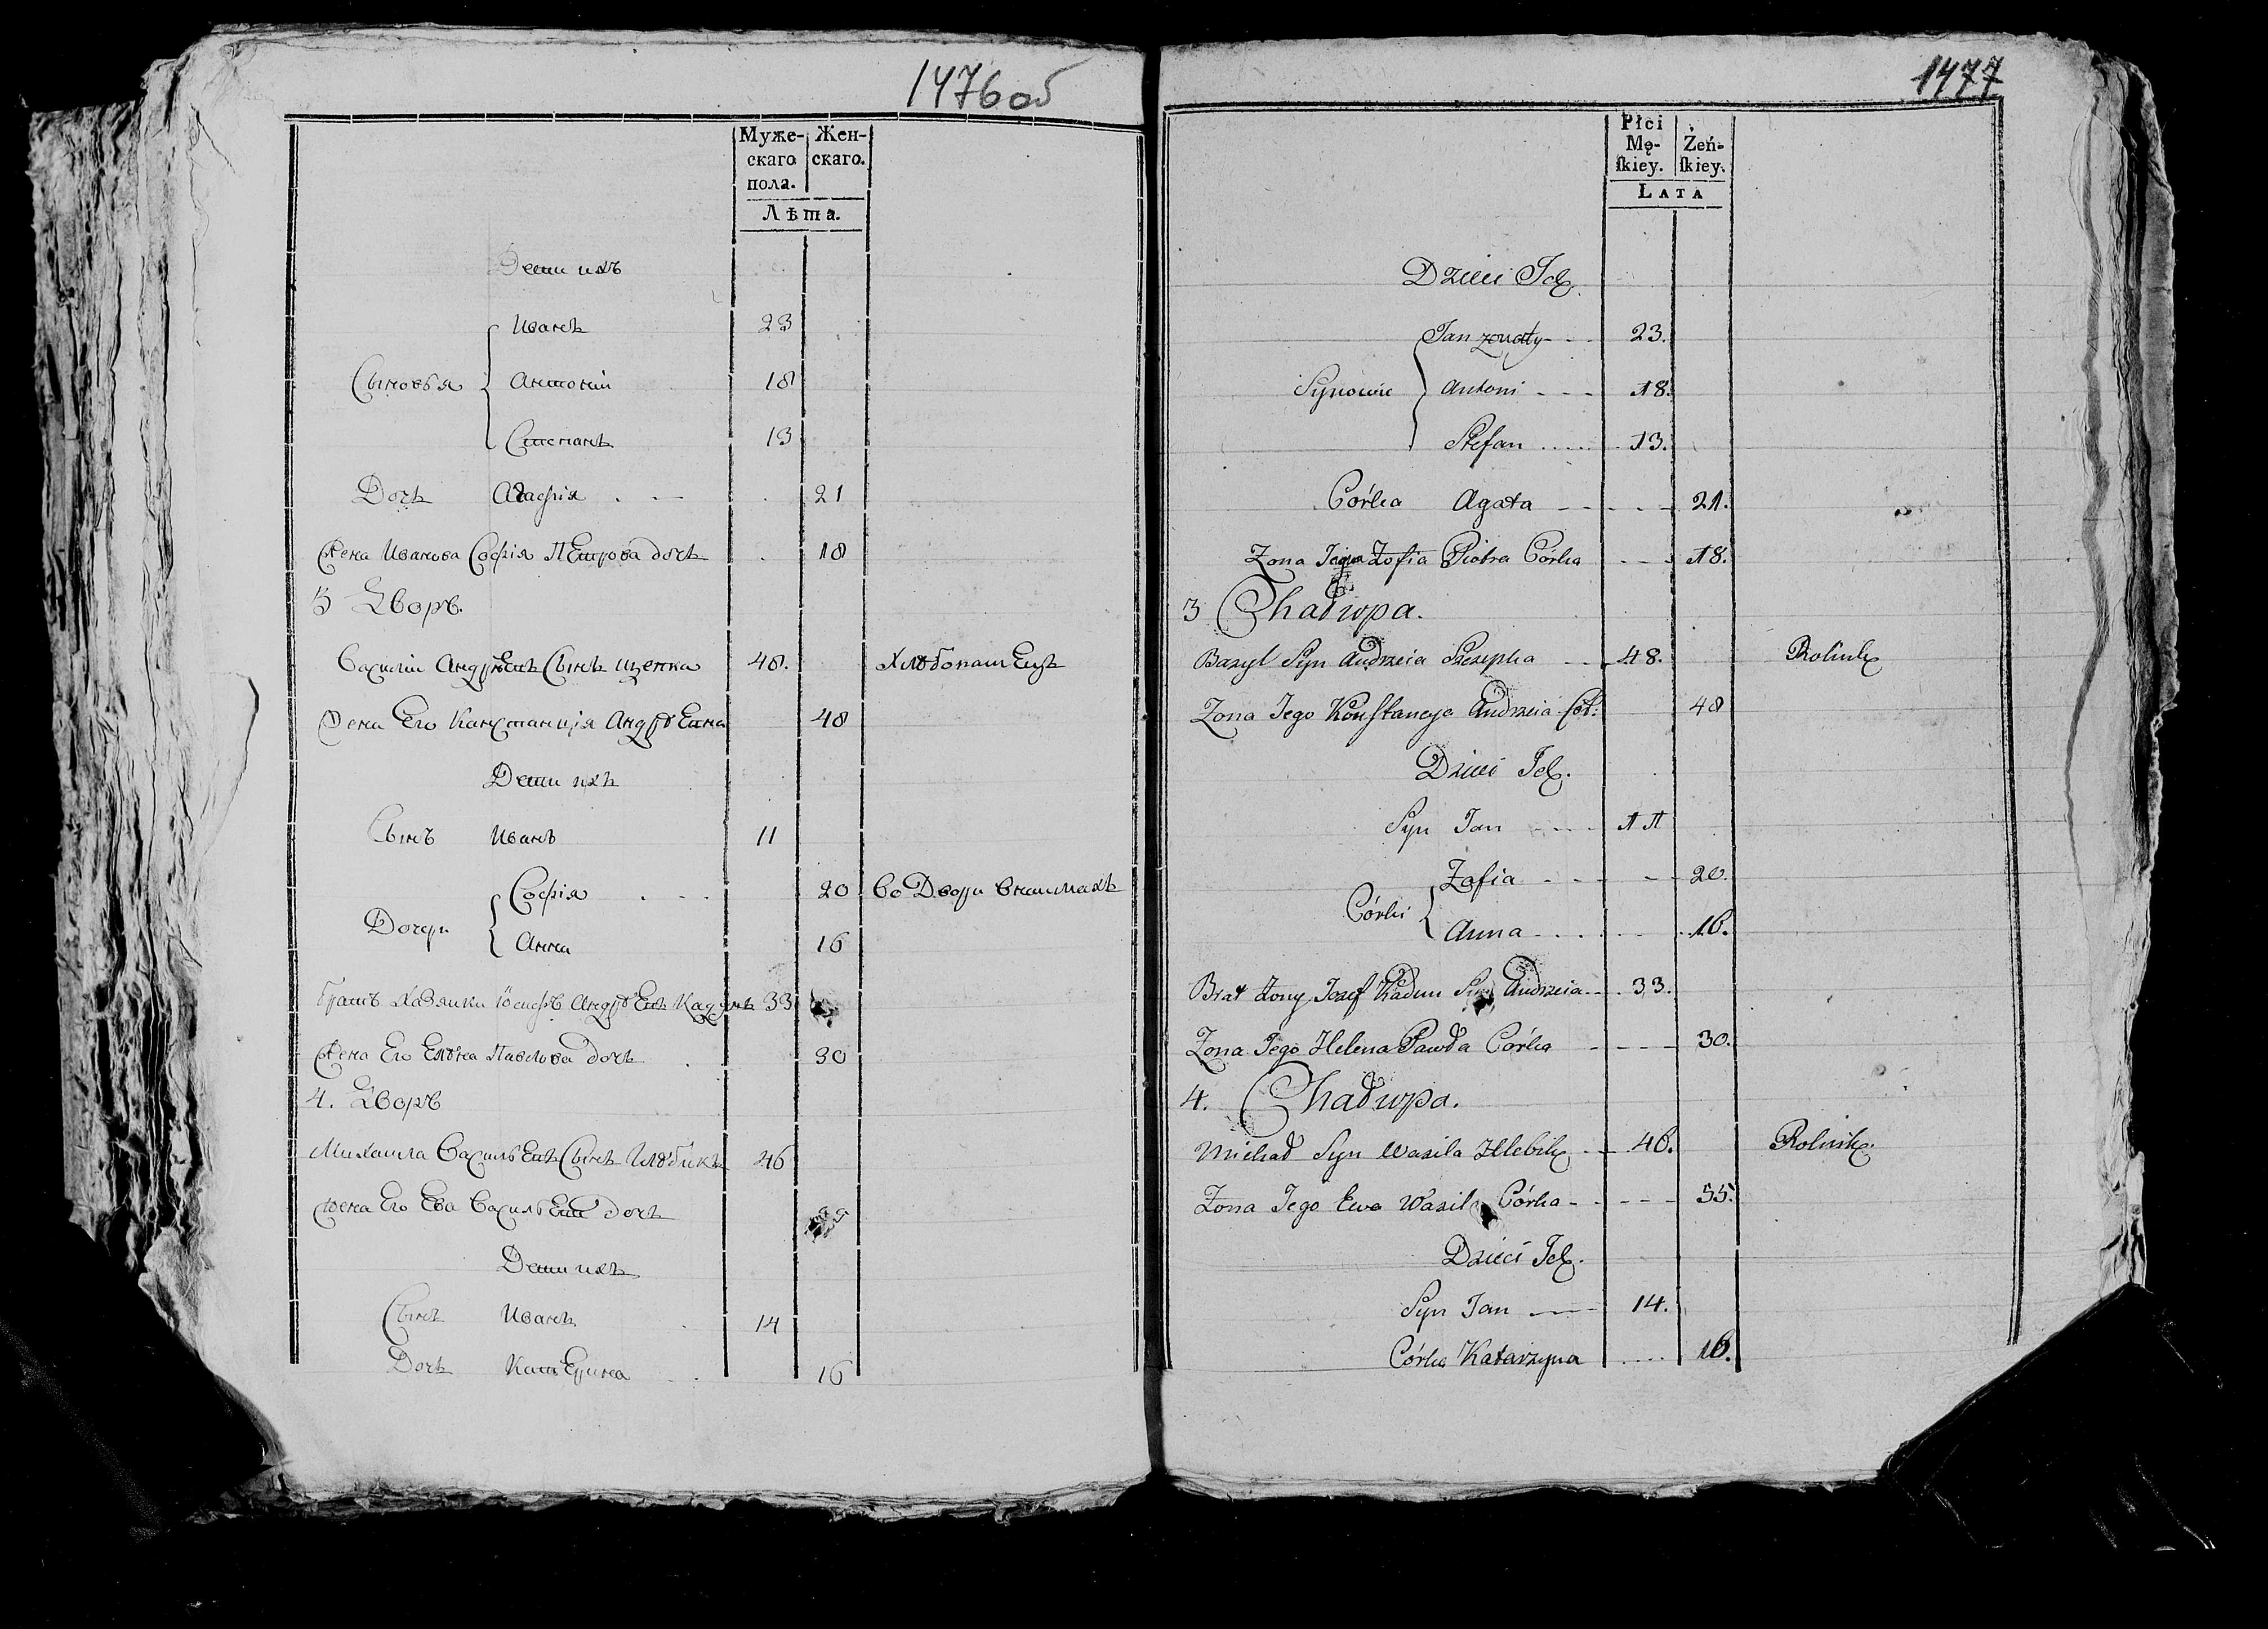 1476об
Муже-
скаго
пола.
Жен-
скаго.
Лѣта.
Дети ихъ
Иванъ 23
Сыновья Антоній 18
Степанъ 13
Дочь Агафія 21
Жена Иванова Софія Петрова дочь 18
3 Дворъ.
Василій Андреевъ Сынъ 48. Хлѣбопашецъ
Жена Его Констанція Андрѣевна 48
Дети ихъ
Сынъ Иванъ 11
Софія 20 во Двори
Дочери
Анна 16
братъ Хазяики Іосифъ Андрѣевъ Кадунъ 33
Жена Его Елѣна Павлова дочь 30
4. Дворъ
Михаила Васильевъ Сынъ 46
Жена Его Ева Васильева дочь
Дети ихъ
Сынъ Иванъ 14
Дочь Катерина 16
1477
Płci
Mę-
ſkiey.
Żeń-
ſkiey.
LATA
Dzieci Ich
Jan żonaty 23.
Synowie Antoni 18.
Stefan 13.
Córka Agata 21.
Zona Jego Zofia Piotra Córka 18.
3 Chałupa.
Bazyl Syn Andrzeia 48. Rolnik
Zona Jego Konſtancya Andrzeia Cór: 48
Dzieci Ich.
Syn Jan 11
Zofia 20.
Córki
Anna 16.
Brat żony Jozef Kadun Syn Andrzeia 33.
Zona Jego Helena Pawła Córka 30.
4. Chałupa.
Michał Syn Wasila Hlebik 46. Rolnik.
Zona Jego Ewa Wasila Córka 55.
Dzieci Ich.
Syn Jan 14.
Córka Katarzyna 16.